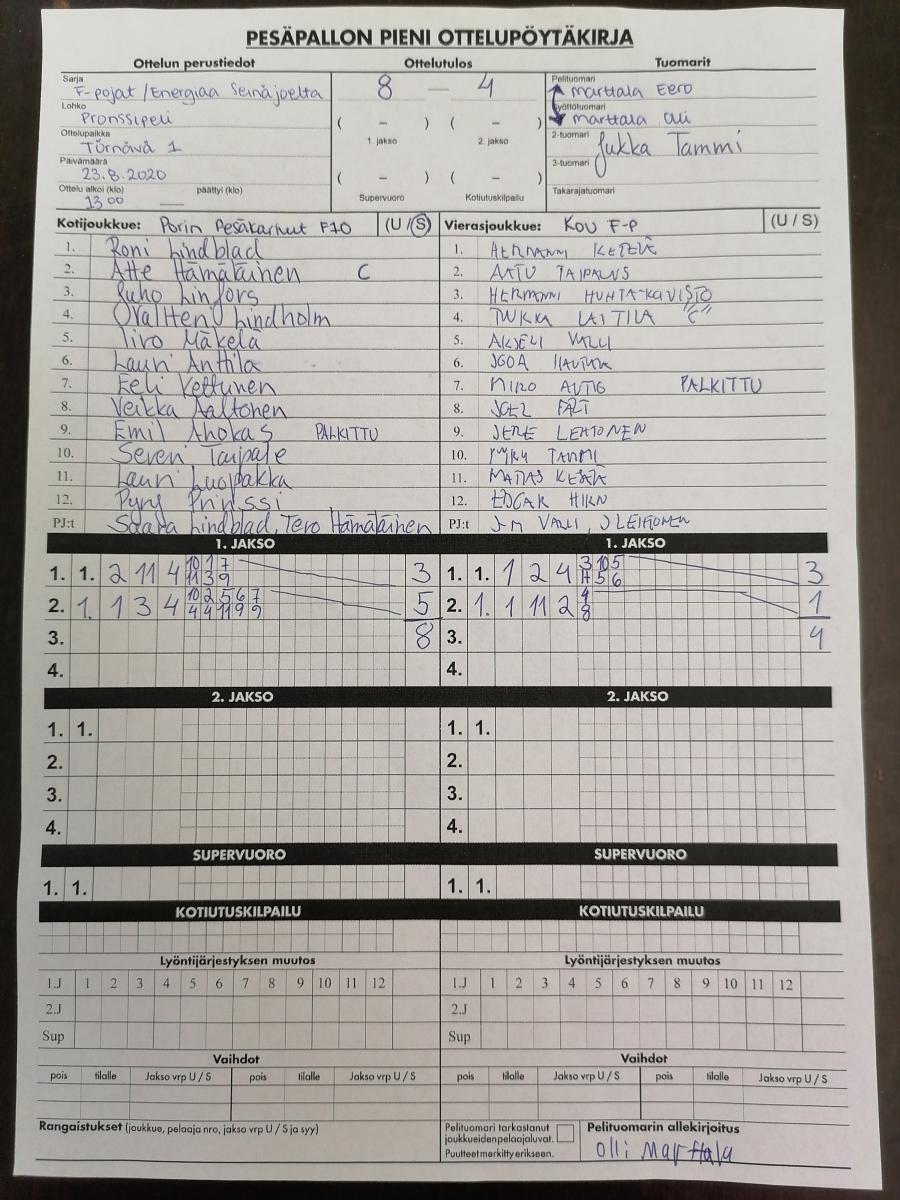 PESÄPALLON PIENI OTTELUPÖYTÄKIRJA
Ottelun perustiedot Ottelutulos Tuomarit
Sarja
F-pojat /Energiaa Seinäjoelta
Lohko
Pronssipeli
Ottelupaikka
Törnävä 1
Päivämäärä
23.8.2020
Ottelu alkoi (klo) päättyi (klo)
13 00
8 — 4
( – ) ( – )
1. jakso 2. jakso
( – ) ( – )
Supervuoro Kotiutuskilpailu
Pelituomari
Marttala Eero
Syöttötuomari
Marttala Olli
2-tuomari
Jukka Tammi
3-tuomari
Takarajatuomari
Kotijoukkue: Porin Pesäkarhut F10 (U / S) Vierasjoukkue: KoU F-P (U / S)
1. Roni Lindblad 1. HERMANNI
2. Atte Hämäläinen C 2. AATU TAIPALUS
3. Juho Linfors 3. HERMANNI HUHTA-KOIVISTO
4. Lindholm 4. LAITILA "C"
5. Mäkelä 5. AKSELI VALLI
6. Lauri Anttila 6.
7. Eeli Kettunen 7. MIRO AUTIO PALKITTU
8. Veikka Aaltonen 8. JOEL
9. Emil Ahokas PALKITTU 9. JERE LEHTONEN
10. Severi Taipale 10. TAMMI
11. Lauri Luopakka 11.
12. Pyry Prinssi 12. EDGAR
PJ:t Saara Lindblad, Tero Hämäläinen PJ:t J-M VALLI, J LEHTONEN
1. JAKSO 1. JAKSO
1. 1. 2 11 4 10 1 7 3 1. 1. 1 2 4 3 10 5 3
11 3 9 11 5 6
2. 1. 1 3 4 10 2 5 6 7 5 2. 1. 1 11 2 4 1
4 4 11 9 9 8
3. 8 3. 4
4. 4.
2. JAKSO 2. JAKSO
1. 1. 1. 1.
2. 2.
3. 3.
4. 4.
SUPERVUORO SUPERVUORO
1. 1. 1. 1.
KOTIUTUSKILPAILU KOTIUTUSKILPAILU
Lyöntijärjestyksen muutos Lyöntijärjestyksen muutos
1.J 1 2 3 4 5 6 7 8 9 10 11 12 1.J 1 2 3 4 5 6 7 8 9 10 11 12
2.J 2.J
Sup Sup
Vaihdot Vaihdot
pois tilalle Jakso vrp U / S pois tilalle Jakso vrp U / S pois tilalle Jakso vrp U / S pois tilalle Jakso vrp U / S
Rangaistukset (joukkue, pelaaja nro, jakso vrp U / S ja syy)
Pelituomari tarkastanut
joukkueiden pelaajaluvat.
Puutteet merkitty erikseen.
Pelituomarin allekirjoitus
Olli Marttala